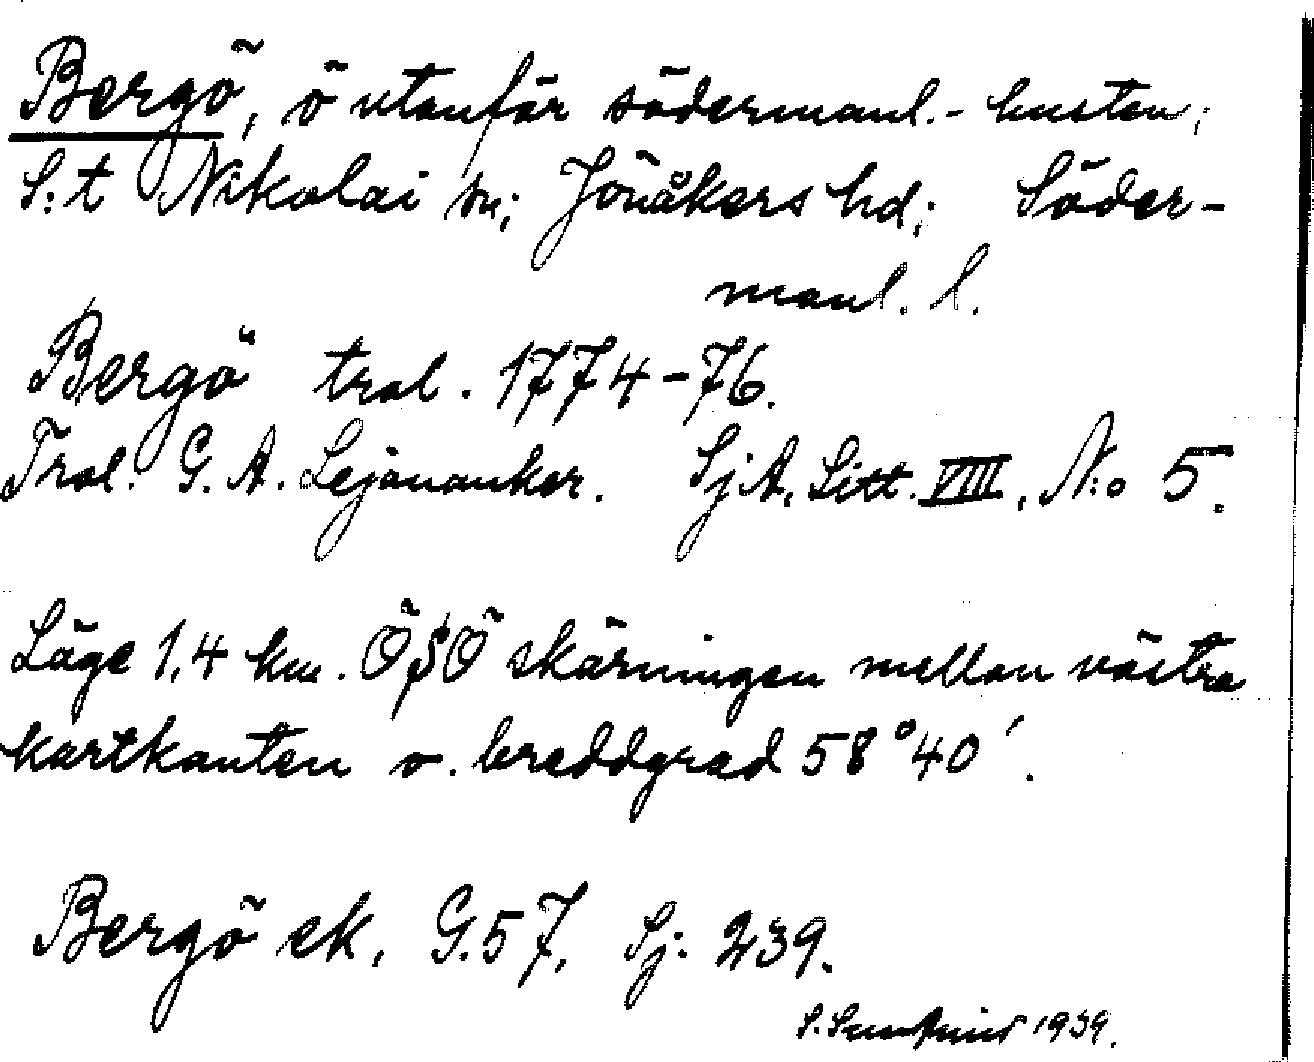 Bergö, ö utanför södermanl.-kusten;
S:t Nikolai sn; Jönåkers hd; Söder-
manl. l.
Bergö tral. 1774-76.
Tral. G. A. Lejonanker. SjA. Litt. VIII, N:o 5.
Läge 1,4 km. ÖSÖ skärningen mellan västra
kartkanten o. breddgrad 58°40'.
Bergö ek. G.57. Sj. 239.
S. 1939.